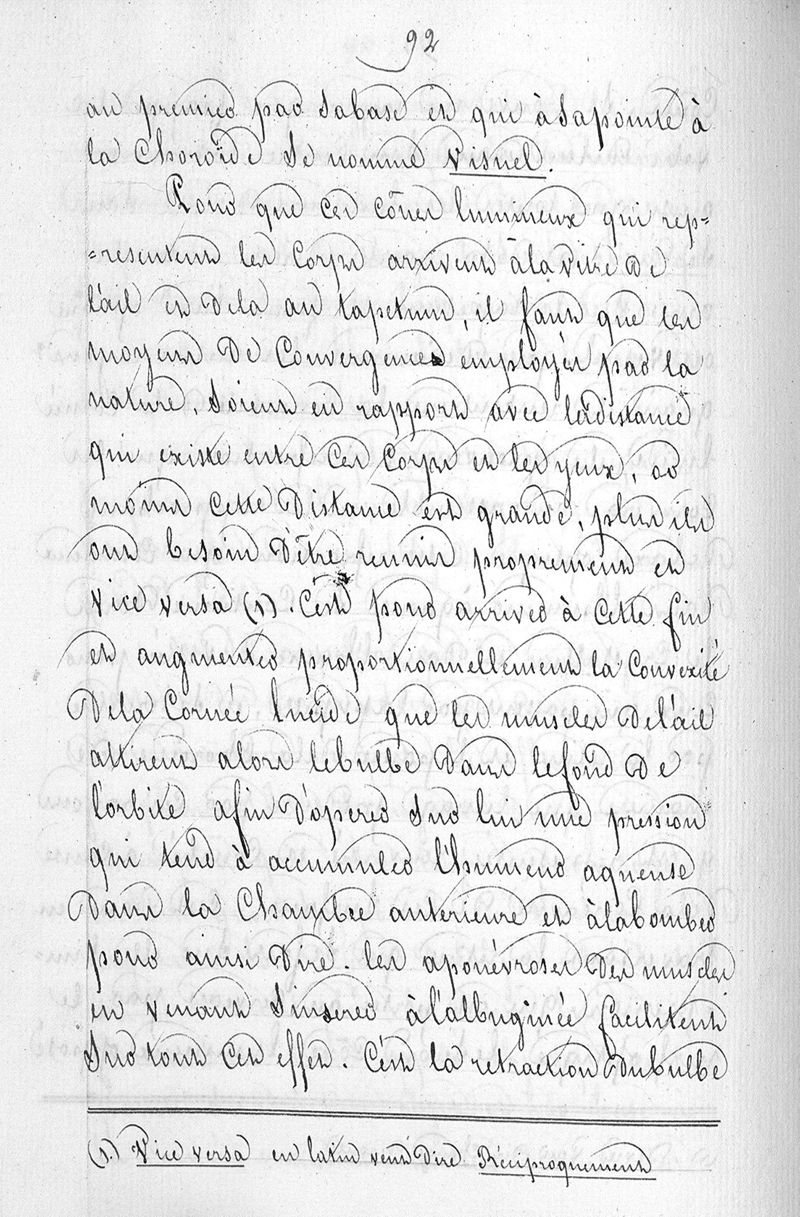 92
au premier par sa base et qui à sa pointe à
la Choroïde se nomme Visuel.
Pour que ces cônes lumineux qui rep=
=résentent les Corps arrivent à la vitre de
l'œil et de la au tapetum, il faut que les
moyens de Convergences employés par la
nature soient en rapport avec la distance
qui existe entre ces Corps et les yeux, or
moins cette distance est grande, plus ils
ont besoin d'être réunis proprement et
vice versa (1). C'est pour arriver à cette fin
et augmenter proportionnellement la Convexité
de la Cornée lucide que les muscles de l'œil
attirent alors le bulbe dans le fond de
l'orbite afin d'opérer sur lui une pression
qui tend à accumuler l'humeur aqueuse
dans la Chambre antérieure et à la bomber
pour ainsi dire. les aponévroses des muscles
en venant s'insérer à l'albuginée facilitent
surtout cet effet. C'est la rétraction du bulbe
(1) Vice versa en latin veut dire Réciproquement